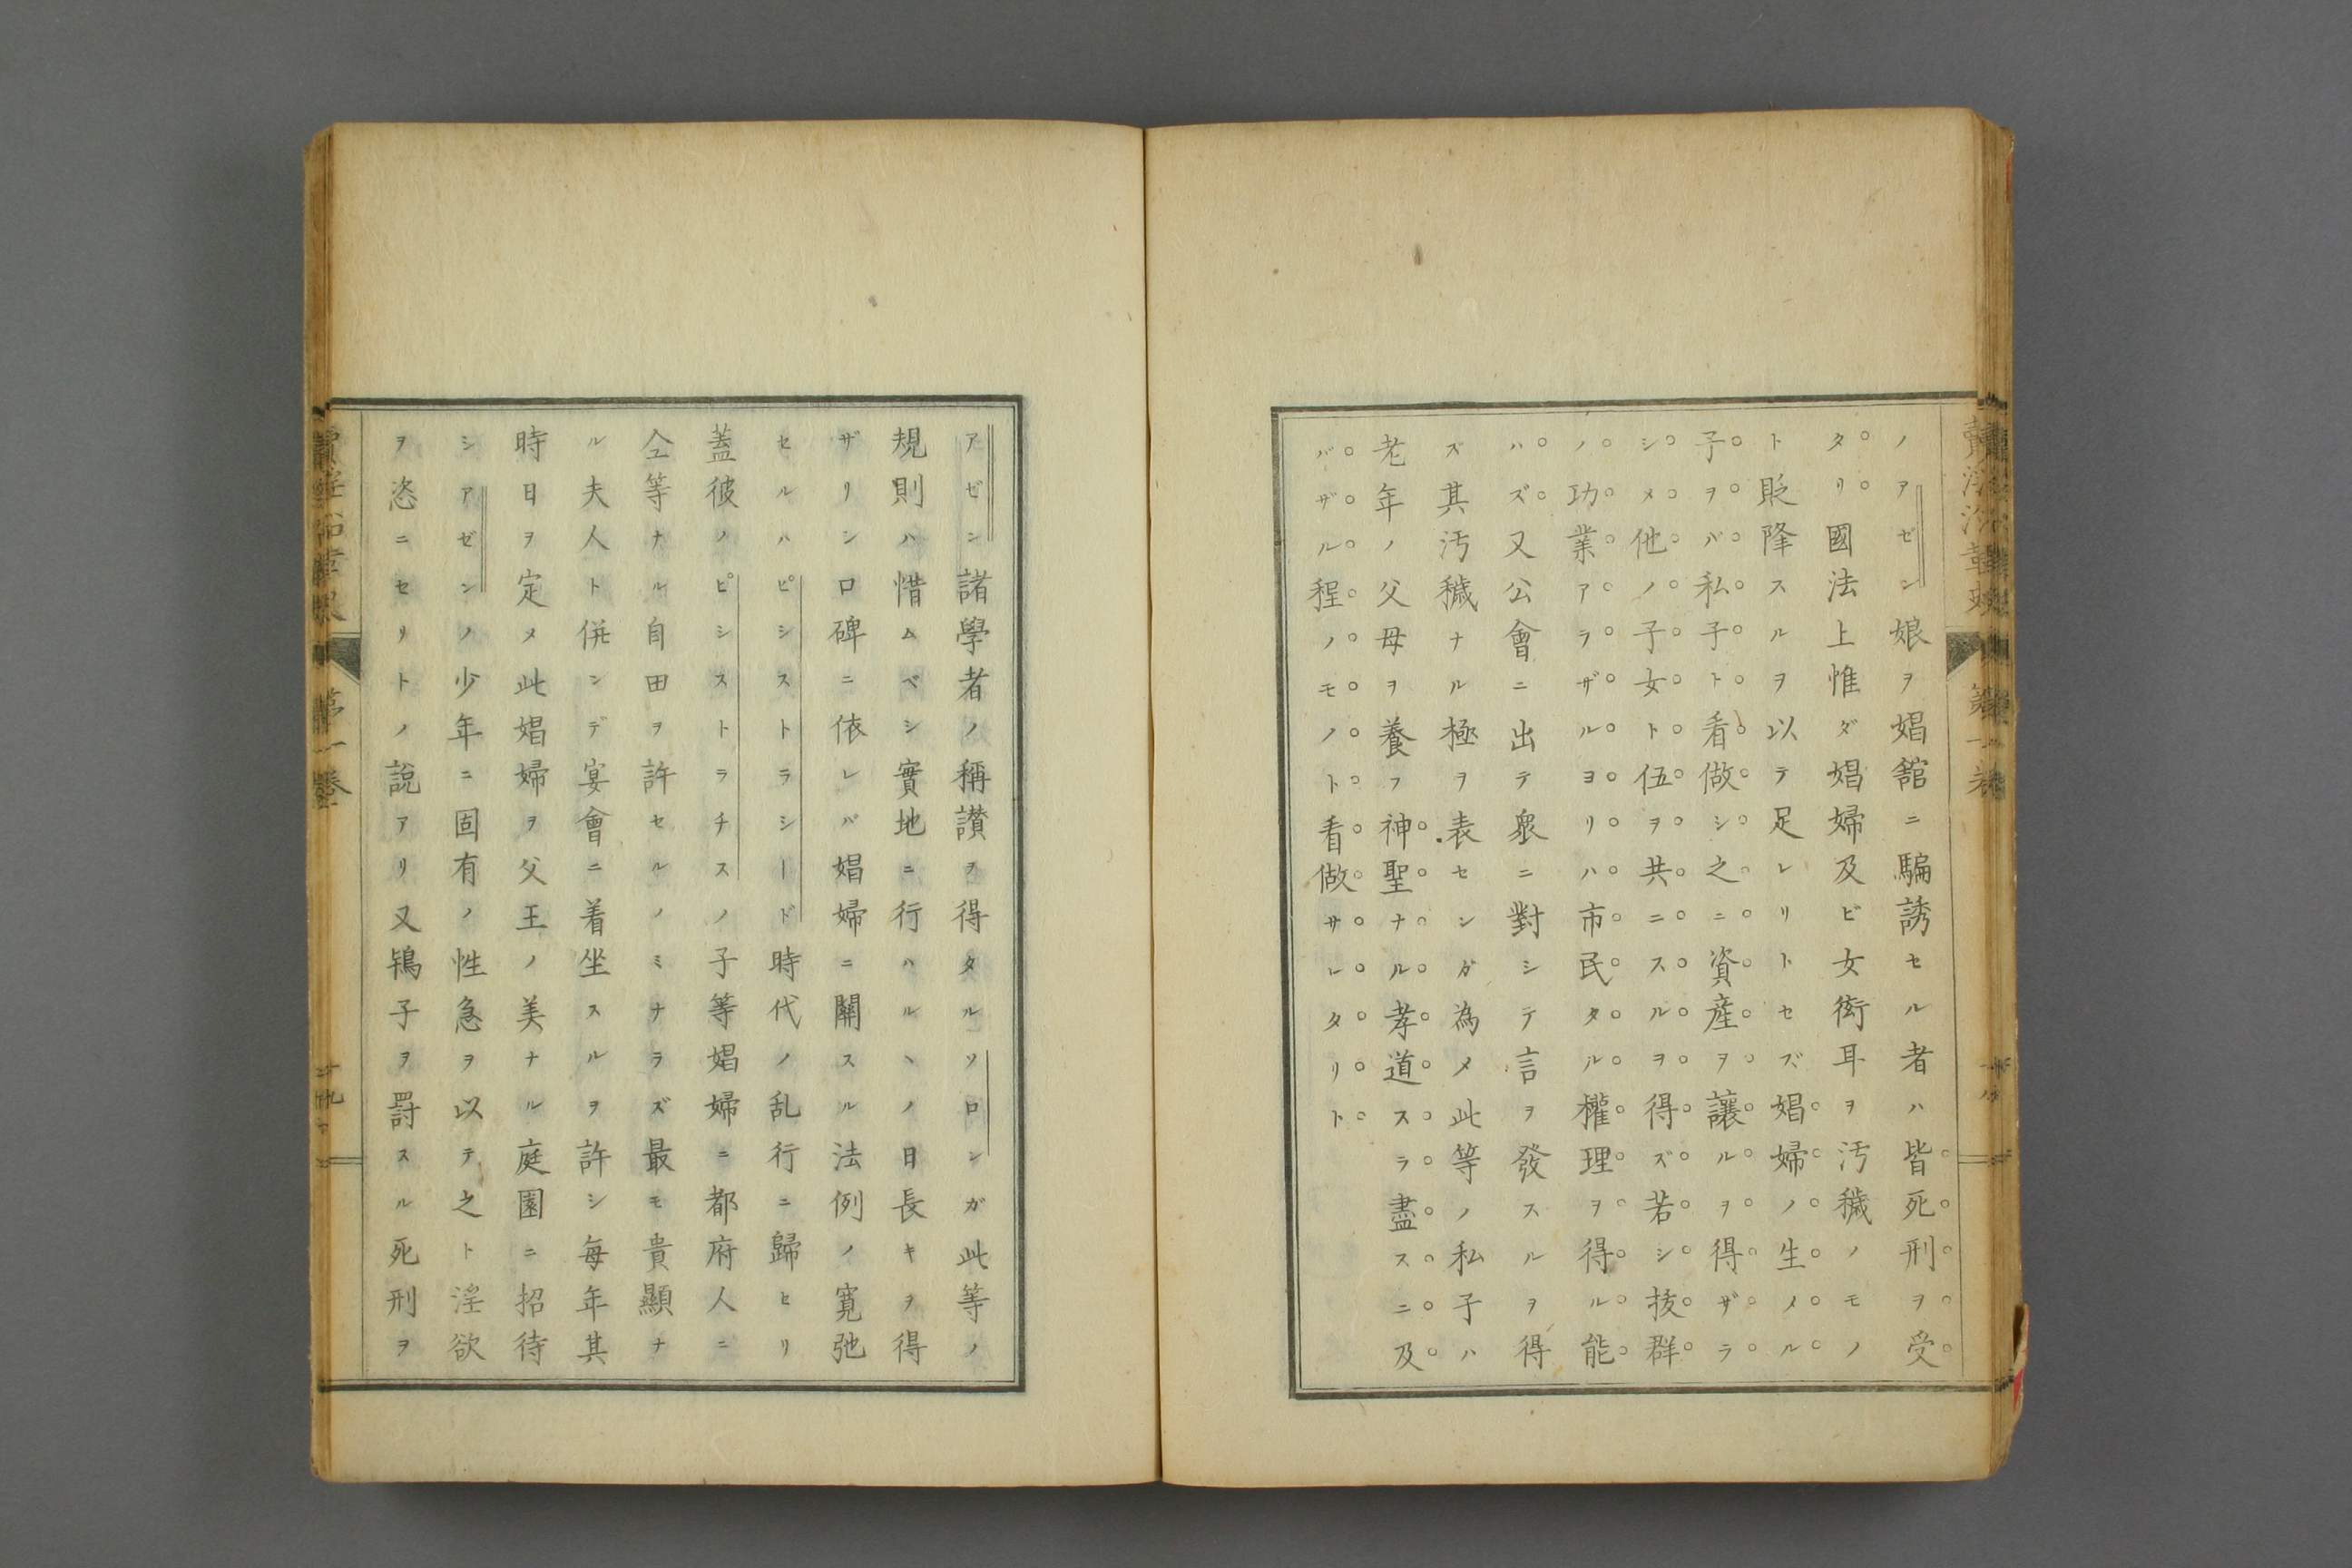 ノアゼン娘ヲ娼舘ニ騙誘セル者ハ皆死刑ヲ受
タリ國法上惟ダ娼婦及ビ女衒耳ヲ汚穢ノモノ
ト貶降スルヲ以テ足レリトセズ娼婦ノ生メル
子ヲバ私子ト看做シ之ニ資産ヲ讓ルヲ得ザラ
シメ他ノ子女ト伍ヲ共ニスルヲ得ズ若シ抜群
ノ功業アラザルヨリハ市民タル權理ヲ得ル能
ハズ又公會ニ出テ衆ニ對シテ言ヲ發スルヲ得
ズ其汚穢ナル極ヲ表センガ為メ此等ノ私子ハ
老年ノ父母ヲ養フ神聖ナル孝道スラ盡スニ及
バザル程ノモノト看做サレタリト
アゼン諸學者ノ稱讃ヲ得タルソロンガ此等ノ
規則ハ惜ムベシ實地ニ行ハルヽノ日長キヲ得
ザリシ口碑ニ依レバ娼婦ニ關スル法例ノ寛弛
セルハピシストラシード時代ノ乱行ニ歸セリ
蓋彼ノピシストラチスノ子等娼婦ニ都府人ニ
仝等ナル自由ヲ許セルノミナラズ最モ貴顯ナ
ル夫人ト併ンデ宴會ニ着坐スルヲ許シ毎年其
時日ヲ定メ此娼婦ヲ父王ノ美ナル庭園ニ招待
シアゼンノ少年ニ固有ノ性急ヲ以テ之ト淫欲
ヲ恣ニセリトノ説アリ又鴇子ヲ罸スル死刑ヲ
第一巻